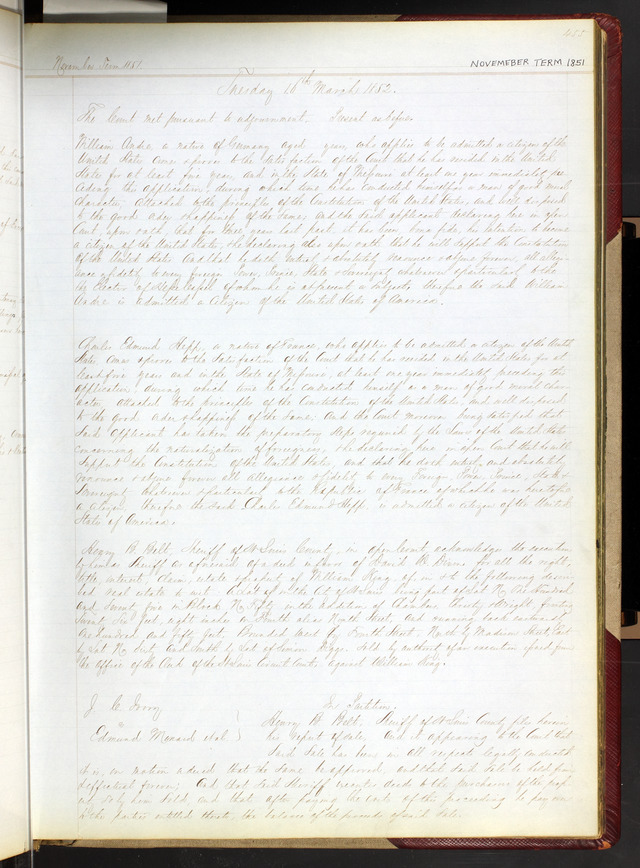 November Term 1851.
NOVEMEBER TERM 1851
Tuesday 16th March 1852.
The Court met pursuant to adjournment. Present as before.
William Andre a native of Germany aged years, who applies to be admitted a citizen of the
United States comes & proves to the satisfaction of the Court that he has resided in the United
States for at least five years, and in the State of Missouri at least one year immediately pre
ceding this application, during which time he has conducted himself as a man of good moral
character, attached to the principles of the Constitution of the United States, and well disposed
to the good order & happiness of the same, and the said applicant declaring here in open
Court, upon oath, that for three years last past it has been bona fide, his intention to become
a citizen of the United States, & he declaring also upon oath that he will support the Constitution
of the United States And that he doth entirely & absolutely renounce & abjure forever all allegi-
ance & fidelity to every foreign Power, Prince, State & Sovereignty whatsoever & particularly to the
the Elector of Hesse Cassel of whom he is at present a subject, Therefore the said William
Andre is admitted a Citizen of the United States of America.
Charles Edmund Hepp, a native of France, who applies to be admitted a citizen of the United
States comes & proves to the satisfaction of the Court that he has resided in the United States for at
least five years and in the State of Missouri, at least one year immediately preceding this
application, during which time he has conducted himself as a man of good moral char-
acter, attached to the principles of the Constitution of the United States, and well disposed
to the good order & happiness of the same: And the Court moreover being satisfied that
said applicant has taken the preparatory steps required by the Laws of the United States
concerning the naturalization of foreigners, & he declaring here in open Court that he will
support the Constitution of the United States, and that he doth entirely and absolutely
renounce & abjure forever all allegiance & fidelity to every foreign Power, Prince, State &
Sovereignty whatsoever & particularly to the Republic of France of which he is at present
a citizen, Therefore the said Charles Edmund Hepp, is admitted a citizen of the United
States of America.
Henry B. Belt, Sheriff of St Louis County, in open Court, acknowledges the execution
by him as Sheriff as aforesaid of a deed in favor of David W. for all the right,
title, interest, claim, estate & property of William King, of, in & to the following descri-
bed real estate to wit: A lot of in the City of St Louis being part of Lot No One hundred
and Seventy five in Block No Fifty in the addition of Chambers Christy & Wright, fronting
Twenty Six feet, eight inches on Fourth alias North Street, and running back eastwardly
One hundred and fifty feet, Bounded West by Fourth Street, North by Madison Street, East
by Lot No Sixty, and South by Lot of Simon. Sold by authority of an execution issued from
the office of the Clerk of the St Louis Circuit Court against William King.
J. C. Ivory
vs
Edmund Menard et al. }
In Partition.
Henry B. Belt, Sheriff of St Louis County files herein
his report of sale, And it appearing to the Court that
said Sale has been in all respects legally conducted
it is, on motion ordered that the same be approved, and that said sale be held firm
& effectual forever; And that said Sheriff execute deeds to the purchasers of the prop-
erty by him sold, and that after paying the costs of this proceeding he pay over
to the parties entitled thereto, the balance of the proceeds of said sale.